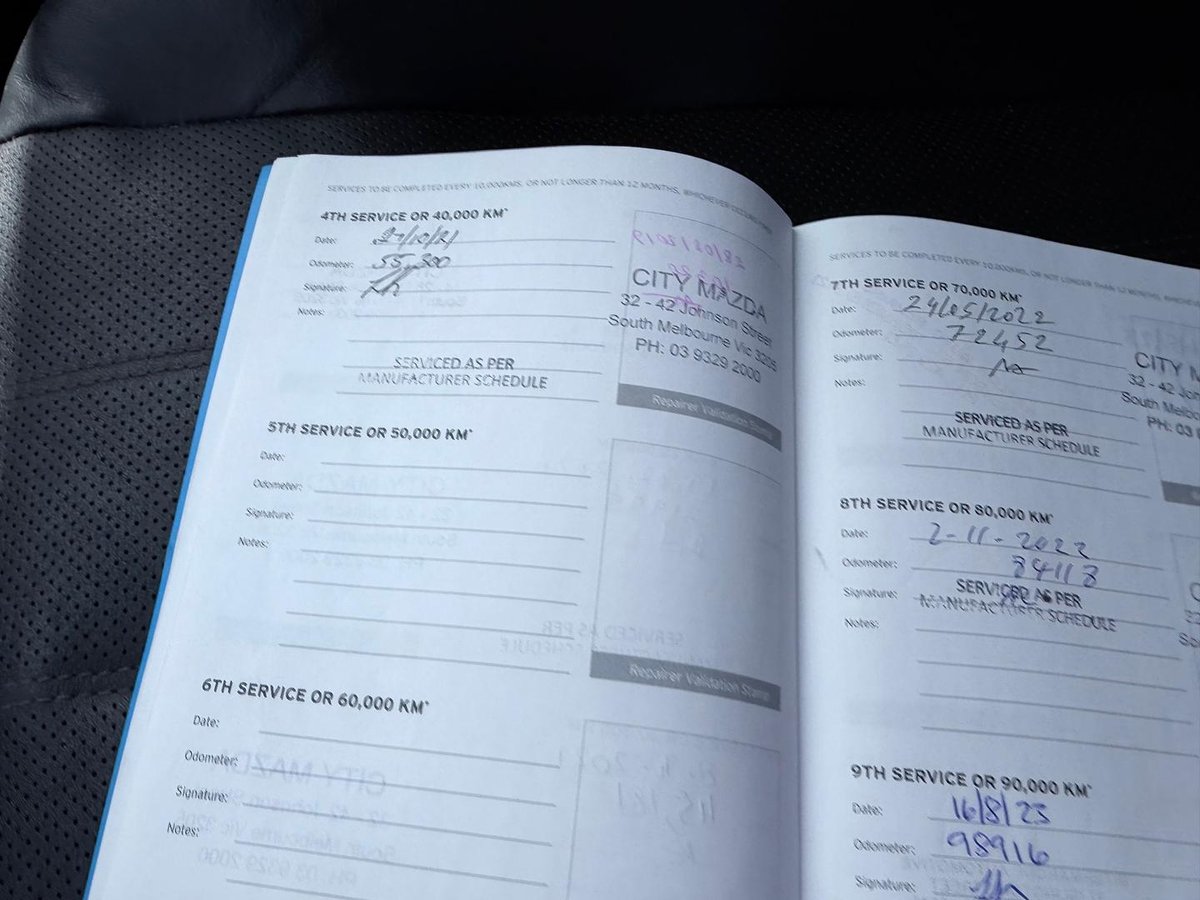 SERVICES TO BE COMPLETED EVERY 10,000KMS, OR NOT LONGER THAN 12 MONTHS, WHICHEVER OCCURS
4TH SERVICE OR 40,000 KM*
Date: 27/10/21
Odometer: 55,300
Signature:
Notes:
SERVICED AS PER
MANUFACTURER SCHEDULE
CITY MAZDA
32 - 42 Johnson Street
South Melbourne Vic 3205
PH: 03 9329 2000
Repairer Validation Stamp
5TH SERVICE OR 50,000 KM*
Date:
Odometer:
Signature:
Notes:
Repairer Validation Stamp
6TH SERVICE OR 60,000 KM*
Date:
Odometer:
Signature:
Notes:
SERVICES TO BE COMPLETED EVERY 10,000KMS, OR NOT LONGER THAN 12 MONTHS,
7TH SERVICE OR 70,000 KM*
Date: 24/05/2022
Odometer: 72452
Signature:
Notes:
SERVICED AS PER
MANUFACTURER SCHEDULE
CITY M
32 - 42 Jo
South Melbo
PH: 03 9
8TH SERVICE OR 80,000 KM*
Date: 2-11-2022
Odometer: 84118
Signature:
SERVICED AS PER
MANUFACTURER SCHEDULE
Notes:
9TH SERVICE OR 90,000 KM*
Date: 16/8/23
Odometer: 98916
Signature: